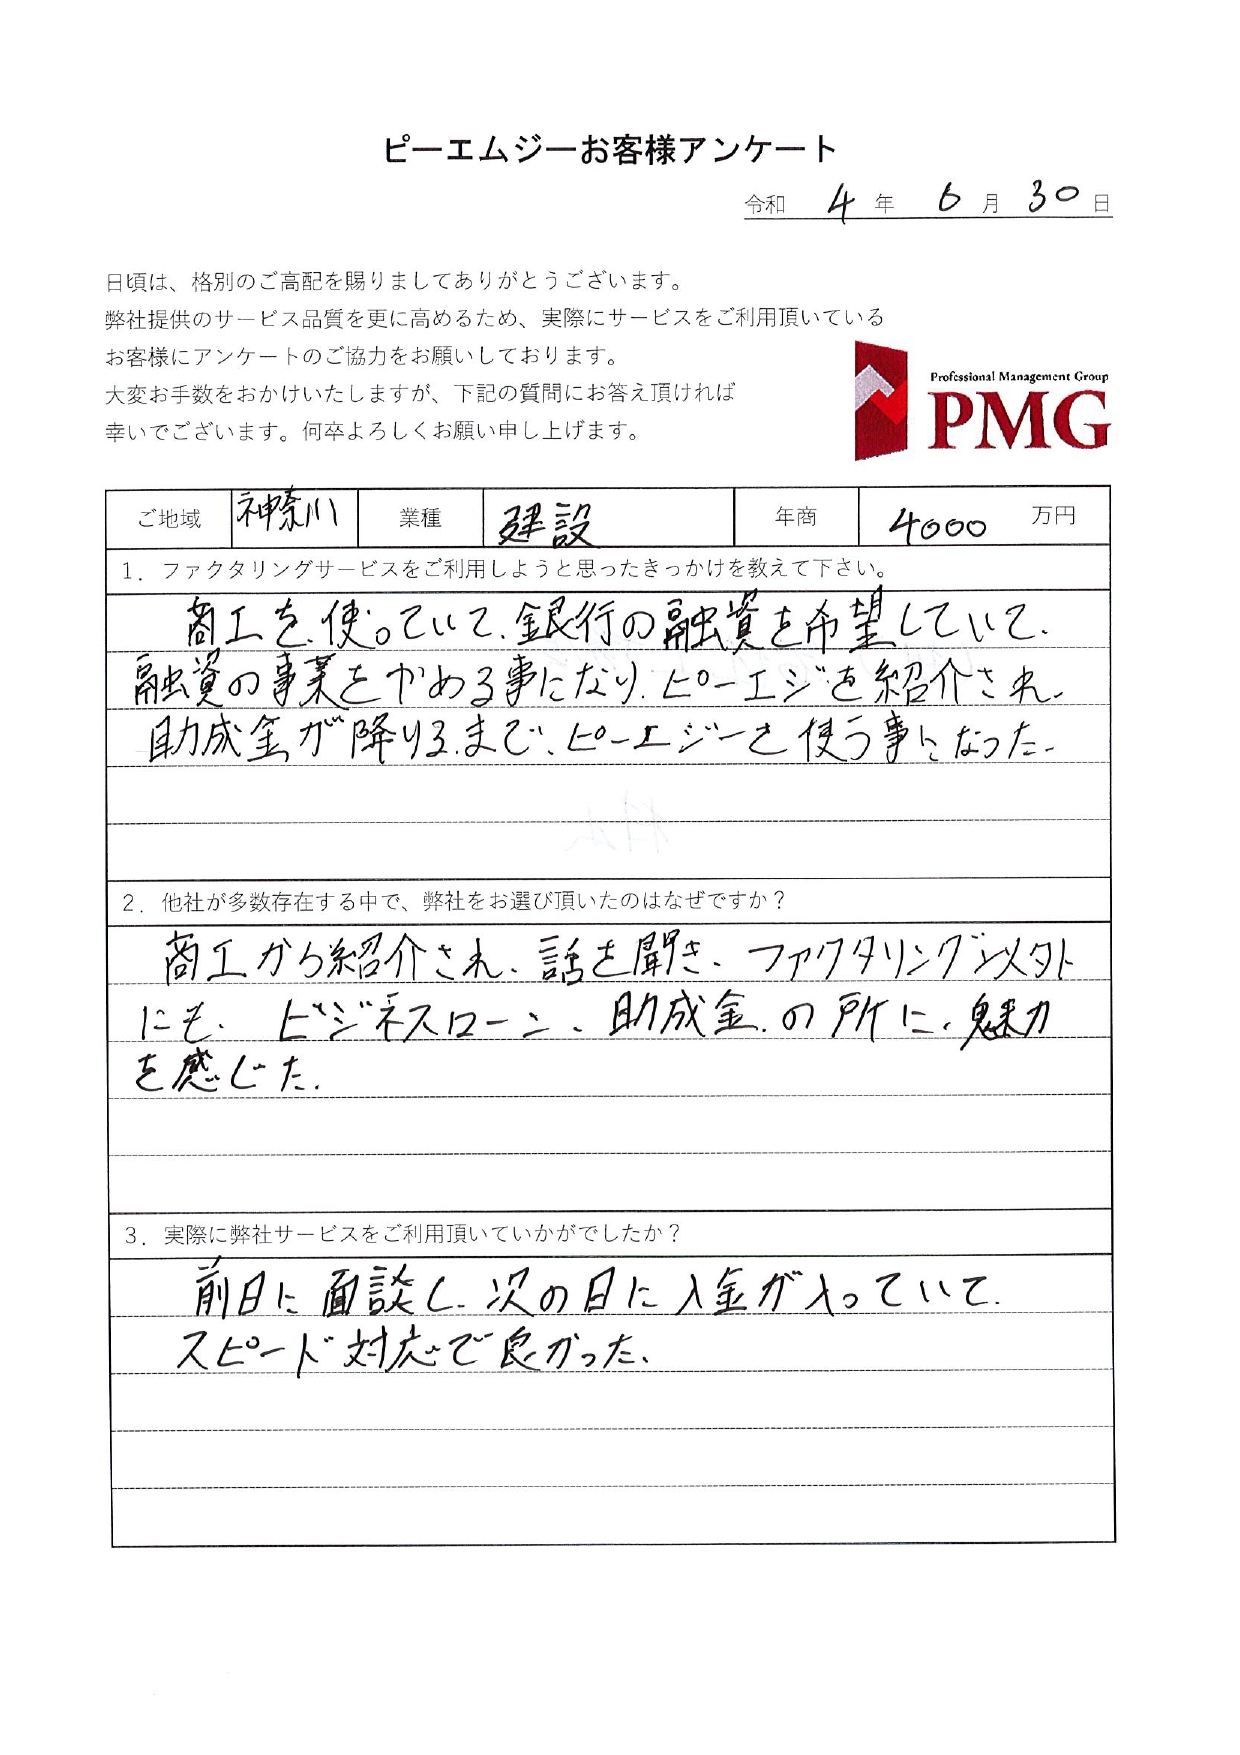 ピーエムジーお客様アンケート
令和 4 年 6 月 30 日
日頃は、格別のご高配を賜りましてありがとうございます。
弊社提供のサービス品質を更に高めるため、実際にサービスをご利用頂いている
お客様にアンケートのご協力をお願いしております。
大変お手数をおかけいたしますが、下記の質問にお答え頂ければ
幸いでございます。何卒よろしくお願い申し上げます。
Professional Management Group
PMG
ご地域 神奈川 業種 建設 年商 4000 万円
1．ファクタリングサービスをご利用しようと思ったきっかけを教えて下さい。
商工を、使っていて、銀行の融資を希望していて、
融資の事業をやめる事になり、ピーエジを紹介され、
助成金が降りるまで、ピーエジーを使う事になった。
2．他社が多数存在する中で、弊社をお選び頂いたのはなぜですか？
商工から紹介され、話を聞き、ファクタリング以外
にも、ビジネスローン、助成金、の所に、魅力
を感じた。
3．実際に弊社サービスをご利用頂いていかがでしたか？
前日に面談し、次の日に入金が入っていて、
スピード対応で良かった、